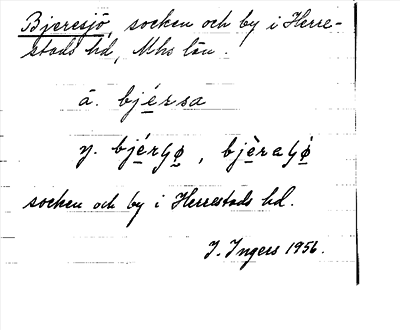 Bjeresjö, socken och by i Herre-
stads hd, Mhs län.
ä. bjérsa
y. bjérɧø̱, bjèraɧø̀
socken och by i Herrestads hd.
I. Ingers 1956.